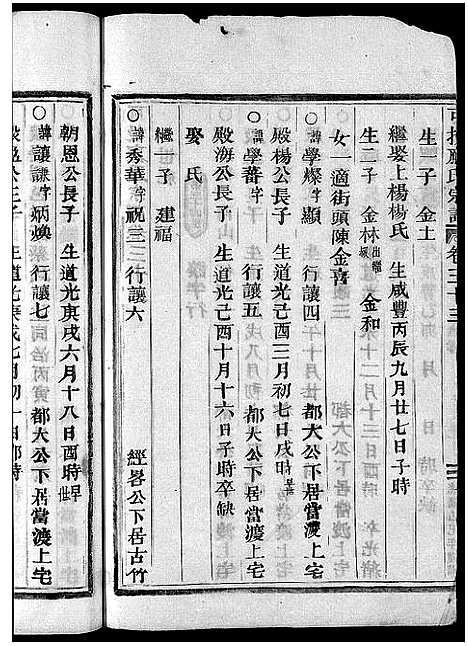 生一子 金土
繼娶上楊楊氏 生咸豐丙辰九月廿七日子時
生二子 金林出繼 金和
女一適街頭陳金喜
○諱學燦字顯 行讓四 都大公下居當渡上宅
殿楊公長子 生道光己酉三月初七日戌時
○諱學蕃字 行讓五 都大公下居當渡上宅
殿海公長子 生道光己酉十月十六日子時卒缺
娶 氏
繼子 建福
○諱秀華字祝三 行讓六 經畧公下居古竹
朝恩公長子 生道光庚戌六月十八日酉時
○諱讓謙字炳煥 行讓七 都大公下居當渡上宅
公三子 生道光庚戌七月初一日卯時